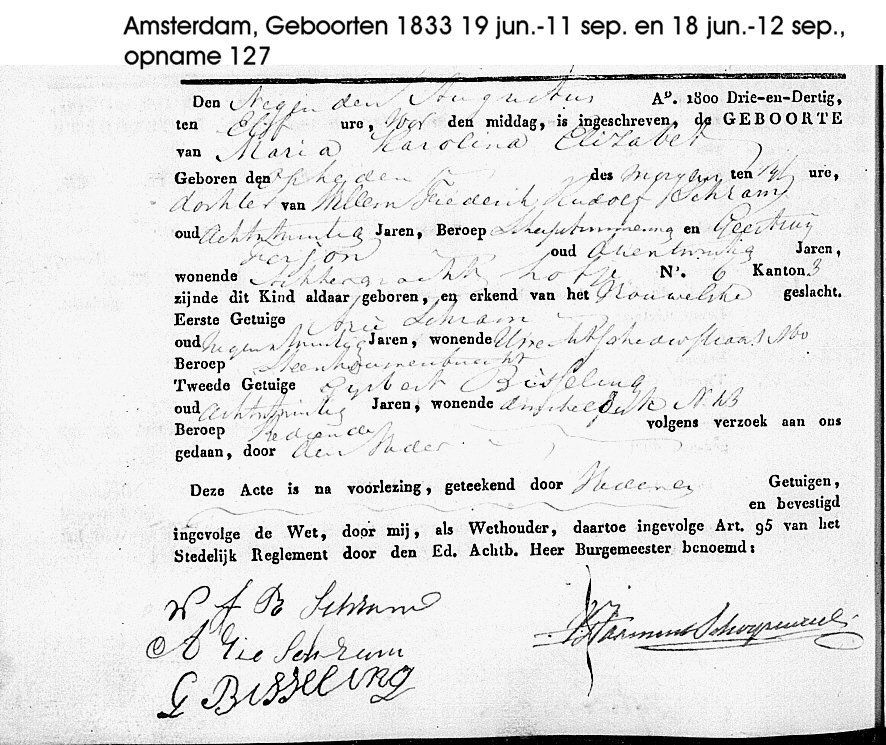 Amsterdam, Geboorten 1833 19 jun.-11 sep. en 18 jun.-12 sep.,
opname 127
Den Negenden Augustus Aº. 1800 Drie-en-Dertig,
ten Elf ure, Voor den middag, is ingeschreven, de GEBOORTE
van Maria Karolina Elizabet
Geboren den des morgens ten ure,
dochter van Willem Frederik Rudolf Schram
oud Achtentwintig Jaren, Beroep Scheepstimmerman en Geertruij
oud Jaren,
wonende N°. 6 Kanton 3
zijnde dit Kind aldaar geboren, en erkend van het Vrouwelijke geslacht.
Eerste Getuige Arie Schram
oud Negenentwintig Jaren, wonende
Beroep
Tweede Getuige Gijsbert Bisseling
oud Achtentwintig Jaren, wonende
Beroep volgens verzoek aan ons
gedaan, door den Vader
Deze Acte is na voorlezing, geteekend door Vader en Getuigen,
en bevestigd
ingevolge de Wet, door mij, als Wethouder, daartoe ingevolge Art. 95 van het
Stedelijk Reglement door den Ed. Achtb. Heer Burgemeester benoemd:
W F R Schram
Arie Schram
G Bisseling